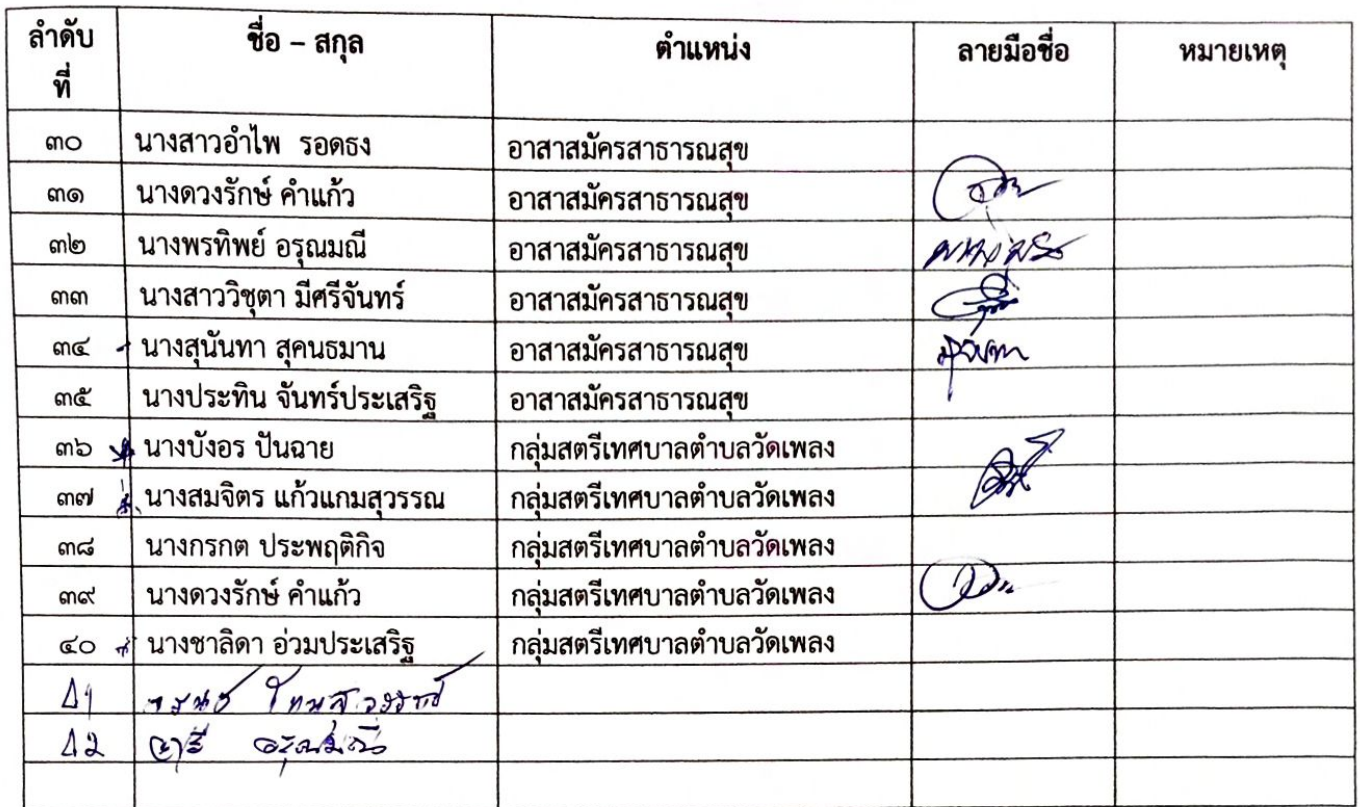 ลำดับที่ ชื่อ – สกุล ตำแหน่ง ลายมือชื่อ หมายเหตุ
๓๐ นางสาวอำไพ รอดธง อาสาสมัครสาธารณสุข
๓๑ นางดวงรักษ์ คำแก้ว อาสาสมัครสาธารณสุข
๓๒ นางพรทิพย์ อรุณมณี อาสาสมัครสาธารณสุข
๓๓ นางสาววิชุตา มีศรีจันทร์ อาสาสมัครสาธารณสุข
๓๔ นางสุนันทา สุคนธมาน อาสาสมัครสาธารณสุข
๓๕ นางประทิน จันทร์ประเสริฐ อาสาสมัครสาธารณสุข
๓๖ นางบังอร ปันฉาย กลุ่มสตรีเทศบาลตำบลวัดเพลง
๓๗ นางสมจิตร แก้วแกมสุวรรณ กลุ่มสตรีเทศบาลตำบลวัดเพลง
๓๘ นางกรกต ประพฤติกิจ กลุ่มสตรีเทศบาลตำบลวัดเพลง
๓๙ นางดวงรักษ์ คำแก้ว กลุ่มสตรีเทศบาลตำบลวัดเพลง
๔๐ นางชาลิดา อ่วมประเสริฐ กลุ่มสตรีเทศบาลตำบลวัดเพลง
41
42 อรุณมณี